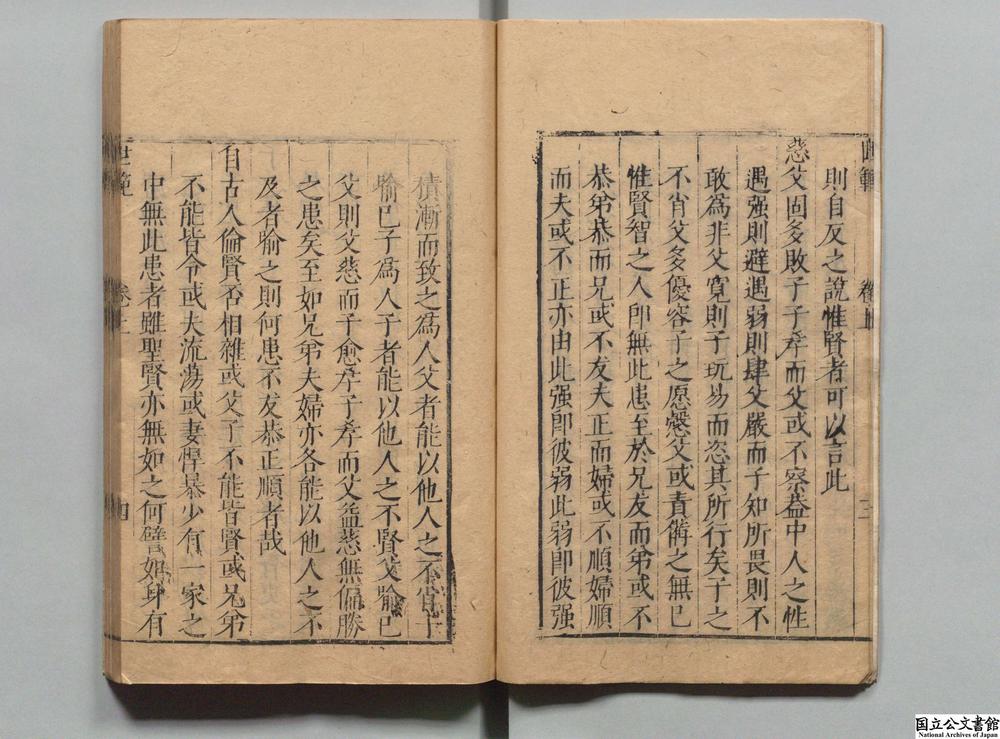 則自反之說惟賢者可以言此
慈父固多敗子子孝而父或不察蓋中人之性
遇强則避遇弱則肆父嚴而子知所畏則不
敢為非父寛則子玩易而恣其所行矣子之
不肖父多優容子之愿慤父或責備之無已
惟賢智之人即無此患至於兄友而弟或不
恭弟恭而兄或不友夫正而婦或不順婦順
而夫或不正亦由此强即彼弱此弱即彼强
三
積漸而致之為人父者能以他人之不肖子
喻已子為人子者能以他人之不賢父喻已
父則父慈而子愈孝子孝而父益慈無偏勝
之患矣至如兄弟夫婦亦各能以他人之不
及者喻之則何患不友恭正順者哉
自古人倫賢否相雜或父子不能皆賢或兄弟
不能皆令或夫流蕩或妻悍暴少有一家之
中無此患者雖聖賢亦無如之何譬如身有
世範
卷上
四
国立公文書館
National Archives of Japan